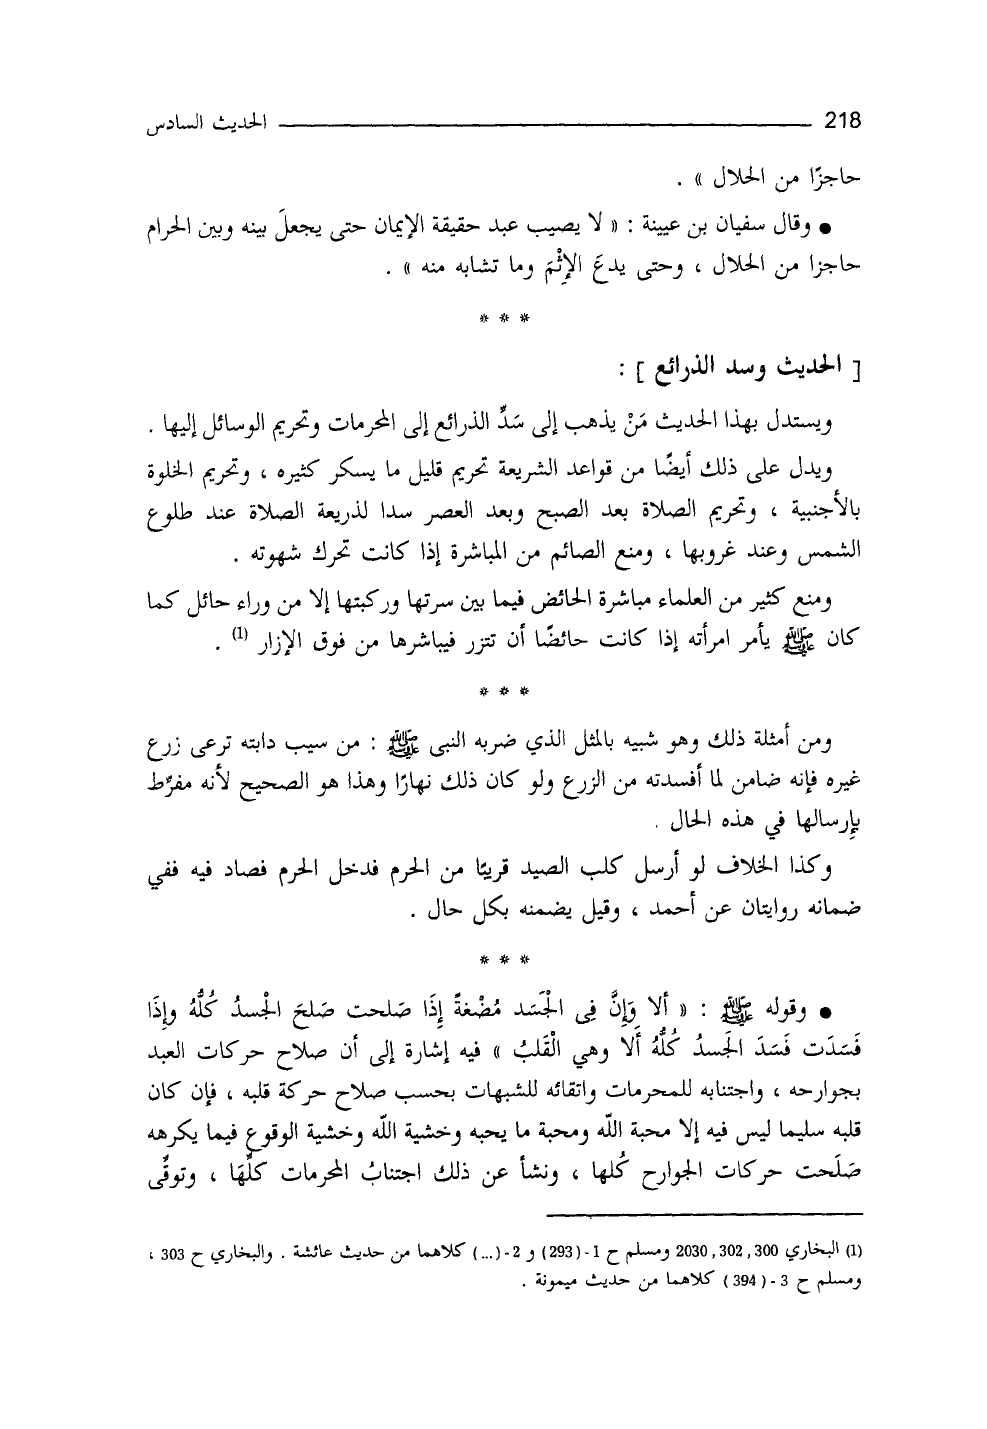 218 الحديث السادس
حاجزًا من الحلال » .
● وقال سفيان بن عيينة : « لا يصيب عبد حقيقة الإيمان حتى يجعلَ بينه وبين الحرام
حاجزا من الحلال ، وحتى يدعَ الإِثْمَ وما تشابه منه » .
* * *
[ الحديث وسد الذرائع ] :
ويستدل بهذا الحديث مَنْ يذهب إلى سَدِّ الذرائع إلى المحرمات وتحريم الوسائل إليها .
ويدل على ذلك أيضًا من قواعد الشريعة تحريم قليل ما يسكر كثيره ، وتحريم الخلوة
بالأجنبية ، وتحريم الصلاة بعد الصبح وبعد العصر سدا لذريعة الصلاة عند طلوع
الشمس وعند غروبها ، ومنع الصائم من المباشرة إذا كانت تحرك شهوته .
ومنع كثير من العلماء مباشرة الحائض فيما بين سرتها وركبتها إلا من وراء حائل كما
كان ﷺ يأمر امرأته إذا كانت حائضًا أن تتزر فيباشرها من فوق الإزار (1) .
* * *
ومن أمثلة ذلك وهو شبيه بالمثل الذي ضربه النبى ﷺ : من سيب دابته ترعى زرع
غيره فإنه ضامن لما أفسدته من الزرع ولو كان ذلك نهارًا وهذا هو الصحيح لأنه مفرِّط
بإرسالها في هذه الحال .
وكذا الخلاف لو أرسل كلب الصيد قريبًا من الحرم فدخل الحرم فصاد فيه ففي
ضمانه روايتان عن أحمد ، وقيل يضمنه بكل حال .
* * *
● وقوله ﷺ : « ألا وَإِنَّ فِى الْجَسَد مُضْغةً إِذَا صَلحت صَلحَ الْجسدُ كُلُّهُ وإِذَا
فَسَدَت فَسَدَ الجَسدُ كُلُّهُ أَلا وهي الْقَلبُ » فيه إشارة إلى أن صلاح حركات العبد
بجوارحه ، واجتنابه للمحرمات واتقائه للشبهات بحسب صلاح حركة قلبه ، فإن كان
قلبه سليما ليس فيه إلا محبة اللّه ومحبة ما يحبه وخشية اللّه وخشية الوقوع فيما يكرهه
صَلَحت حركات الجوارح كُلها ، ونشأ عن ذلك اجتنابُ المحرمات كلِّهَا ، وتوقِّى
(1) البخاري 300 , 302 , 2030 ومسلم ح 1-( 293 ) و 2-( ... ) كلاهما من حديث عائشة . والبخاري ح 303 ،
ومسلم ح 3 - ( 394 ) كلاهما من حديث ميمونة .